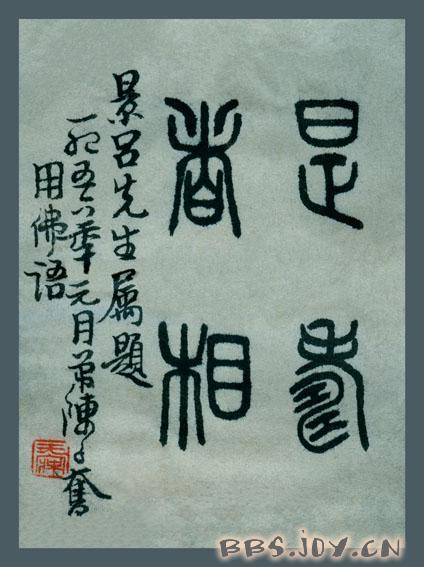 是壽
者相
景呂先生属題
一九五六年元月弟陳子奮
用佛語
BBS.JOY.CN